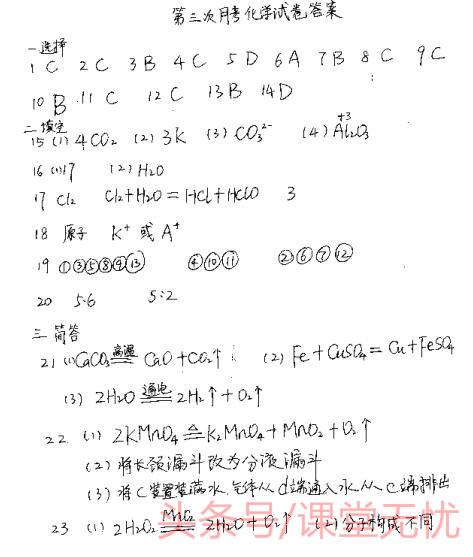 第三次月考化学试卷答案
一选择
1 C 2 C 3 B 4 C 5 D 6 A 7 B 8 C 9 C
10 B 11 C 12 C 13 B 14 D
二填空
15 (1) 4CO₂ (2) 3K (3) CO₃²⁻ (4) Al₂O₃ +3
16 (1) 17 (2) H₂O
17 Cl₂ Cl₂+H₂O=HCl+HClO 3
18 原子 K⁺ 或 A⁺
19 ①③⑤⑧⑨⑬ ④⑩⑪ ②⑥⑦⑫
20 5:6 5:2
三简答
21 (1) CaCO₃ 高温 CaO+CO₂↑ (2) Fe+CuSO₄=Cu+FeSO₄
(3) 2H₂O 通电 2H₂↑+O₂↑
22 (1) 2KMnO₄ △ K₂MnO₄+MnO₂+O₂↑
(2) 将长颈漏斗改为分液漏斗
(3) 将C装置装满水,气体从d端通入水从c端排出
23 (1) 2H₂O₂ MnO₂ 2H₂O+O₂↑ (2) 分子构成不同
头条号/课堂无忧